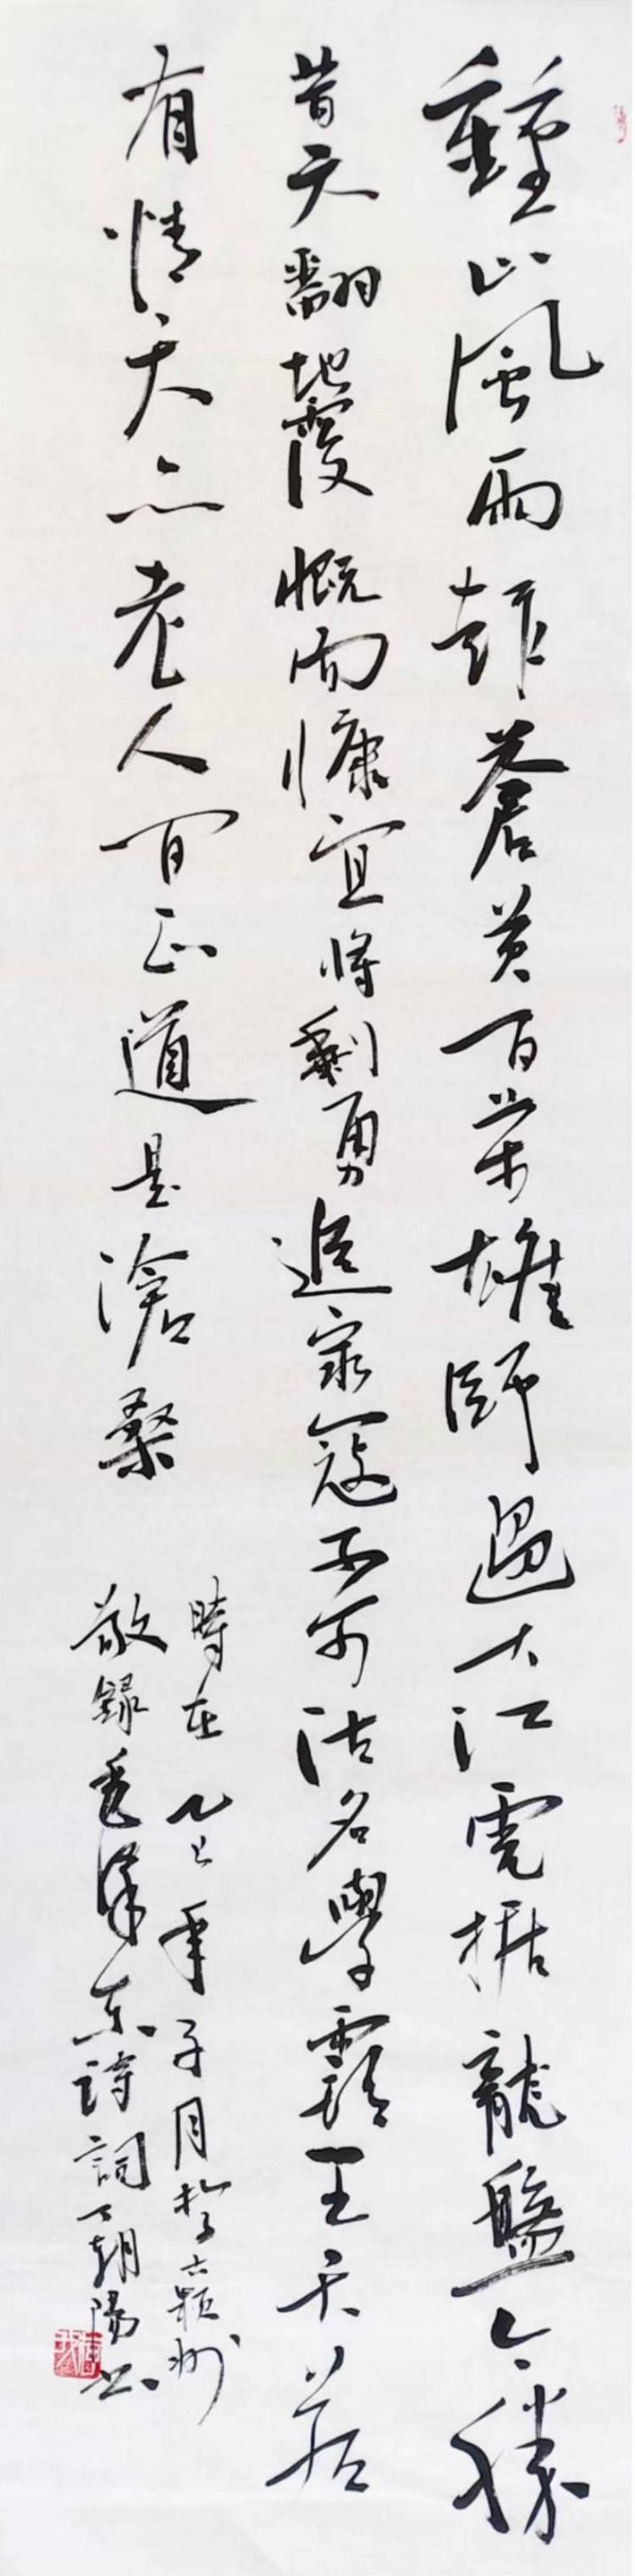 鍾山風雨起蒼黃百萬雄師過大江虎据龍盤今勝
昔天翻地覆慨而慷宜將剩勇追窮寇不可沽名學霸王天若
有情天亦老人间正道是滄桑
時在乙巳年子月於古颖州
敬錄毛澤東詩詞丁朝陽书